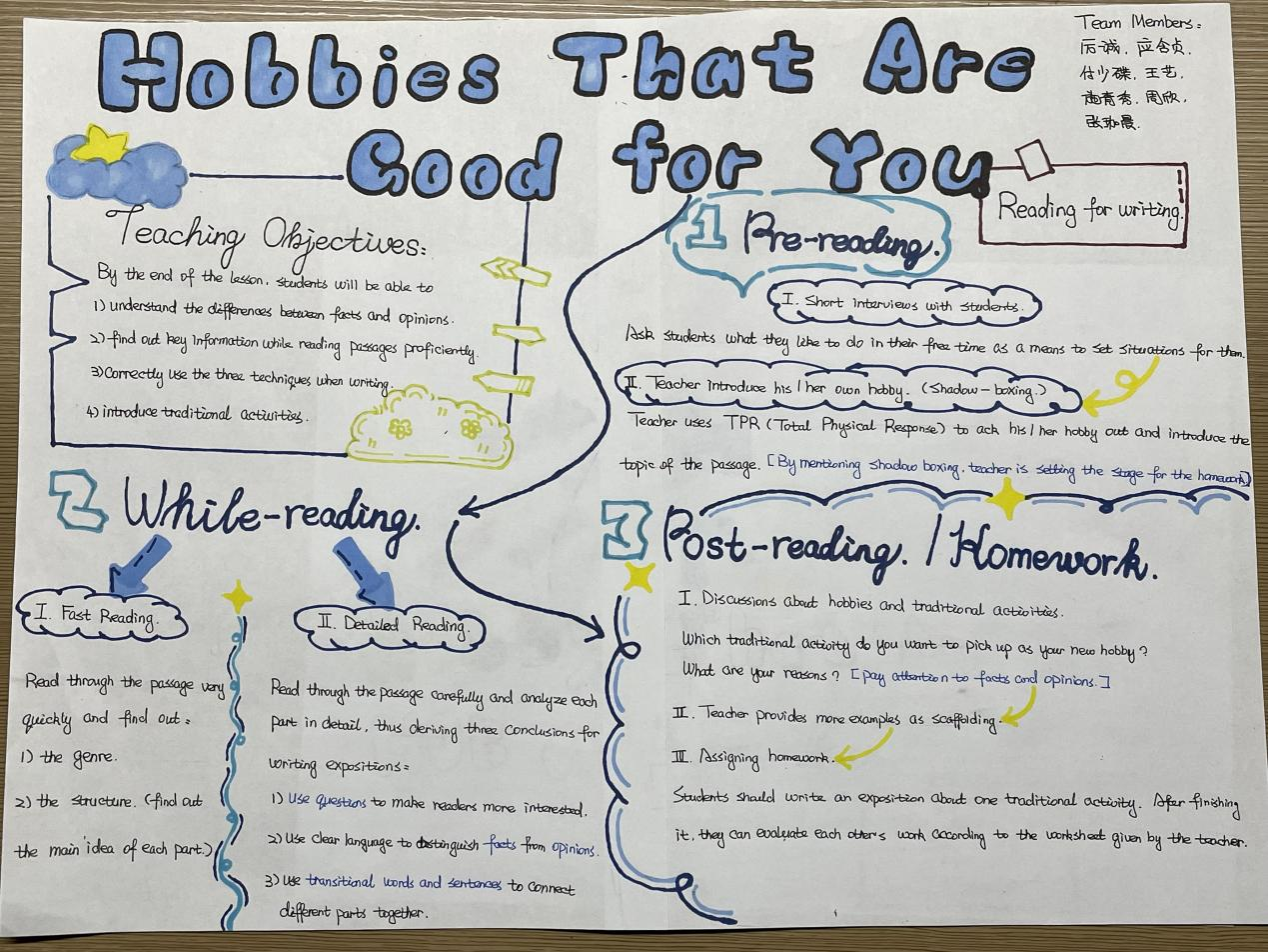 Hobbies That Are
Good for You
Team Members:
厉诚、应含贞、
付少碟、王艺、
施青秀、周欣、
Reading for writing.
Teaching Objectives:
By the end of the lesson, students will be able to
1) understand the differences between facts and opinions.
2) find out key information while reading passages proficiently.
3) Correctly use the three techniques when writing.
4) introduce traditional activities.
1 Pre-reading.
I. Short interviews with students.
Ask students what they like to do in their free time as a means to set situations for them.
II. Teacher introduce his / her own hobby. (shadow-boxing.)
Teacher uses TPR (Total Physical Response) to ack his / her hobby out and introduce the
topic of the passage. [By mentioning shadow boxing, teacher is setting the stage for the homework]
2 While-reading.
I. Fast Reading.
Read through the passage very
quickly and find out:
1) the genre.
2) the structure. (find out
the main idea of each part.)
II. Detailed Reading.
Read through the passage carefully and analyze each
part in detail, thus deriving three conclusions for
writing expositions:
1) Use questions to make readers more interested.
2) Use clear language to distinguish facts from opinions.
3) Use transitional words and sentences to connect
different parts together.
3 Post-reading. / Homework.
I. Discussions about hobbies and traditional activities.
Which traditional activity do you want to pick up as your new hobby?
What are your reasons? [pay attention to facts and opinions.]
II. Teacher provides more examples as scaffolding.
III. Assigning homework.
Students should write an exposition about one traditional activity. Afer finishing
it, they can evaluate each other's work according to the worksheet given by the teacher.